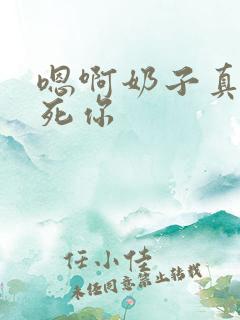 嗯啊奶子真
死你
任小佳
未经同意禁止转载